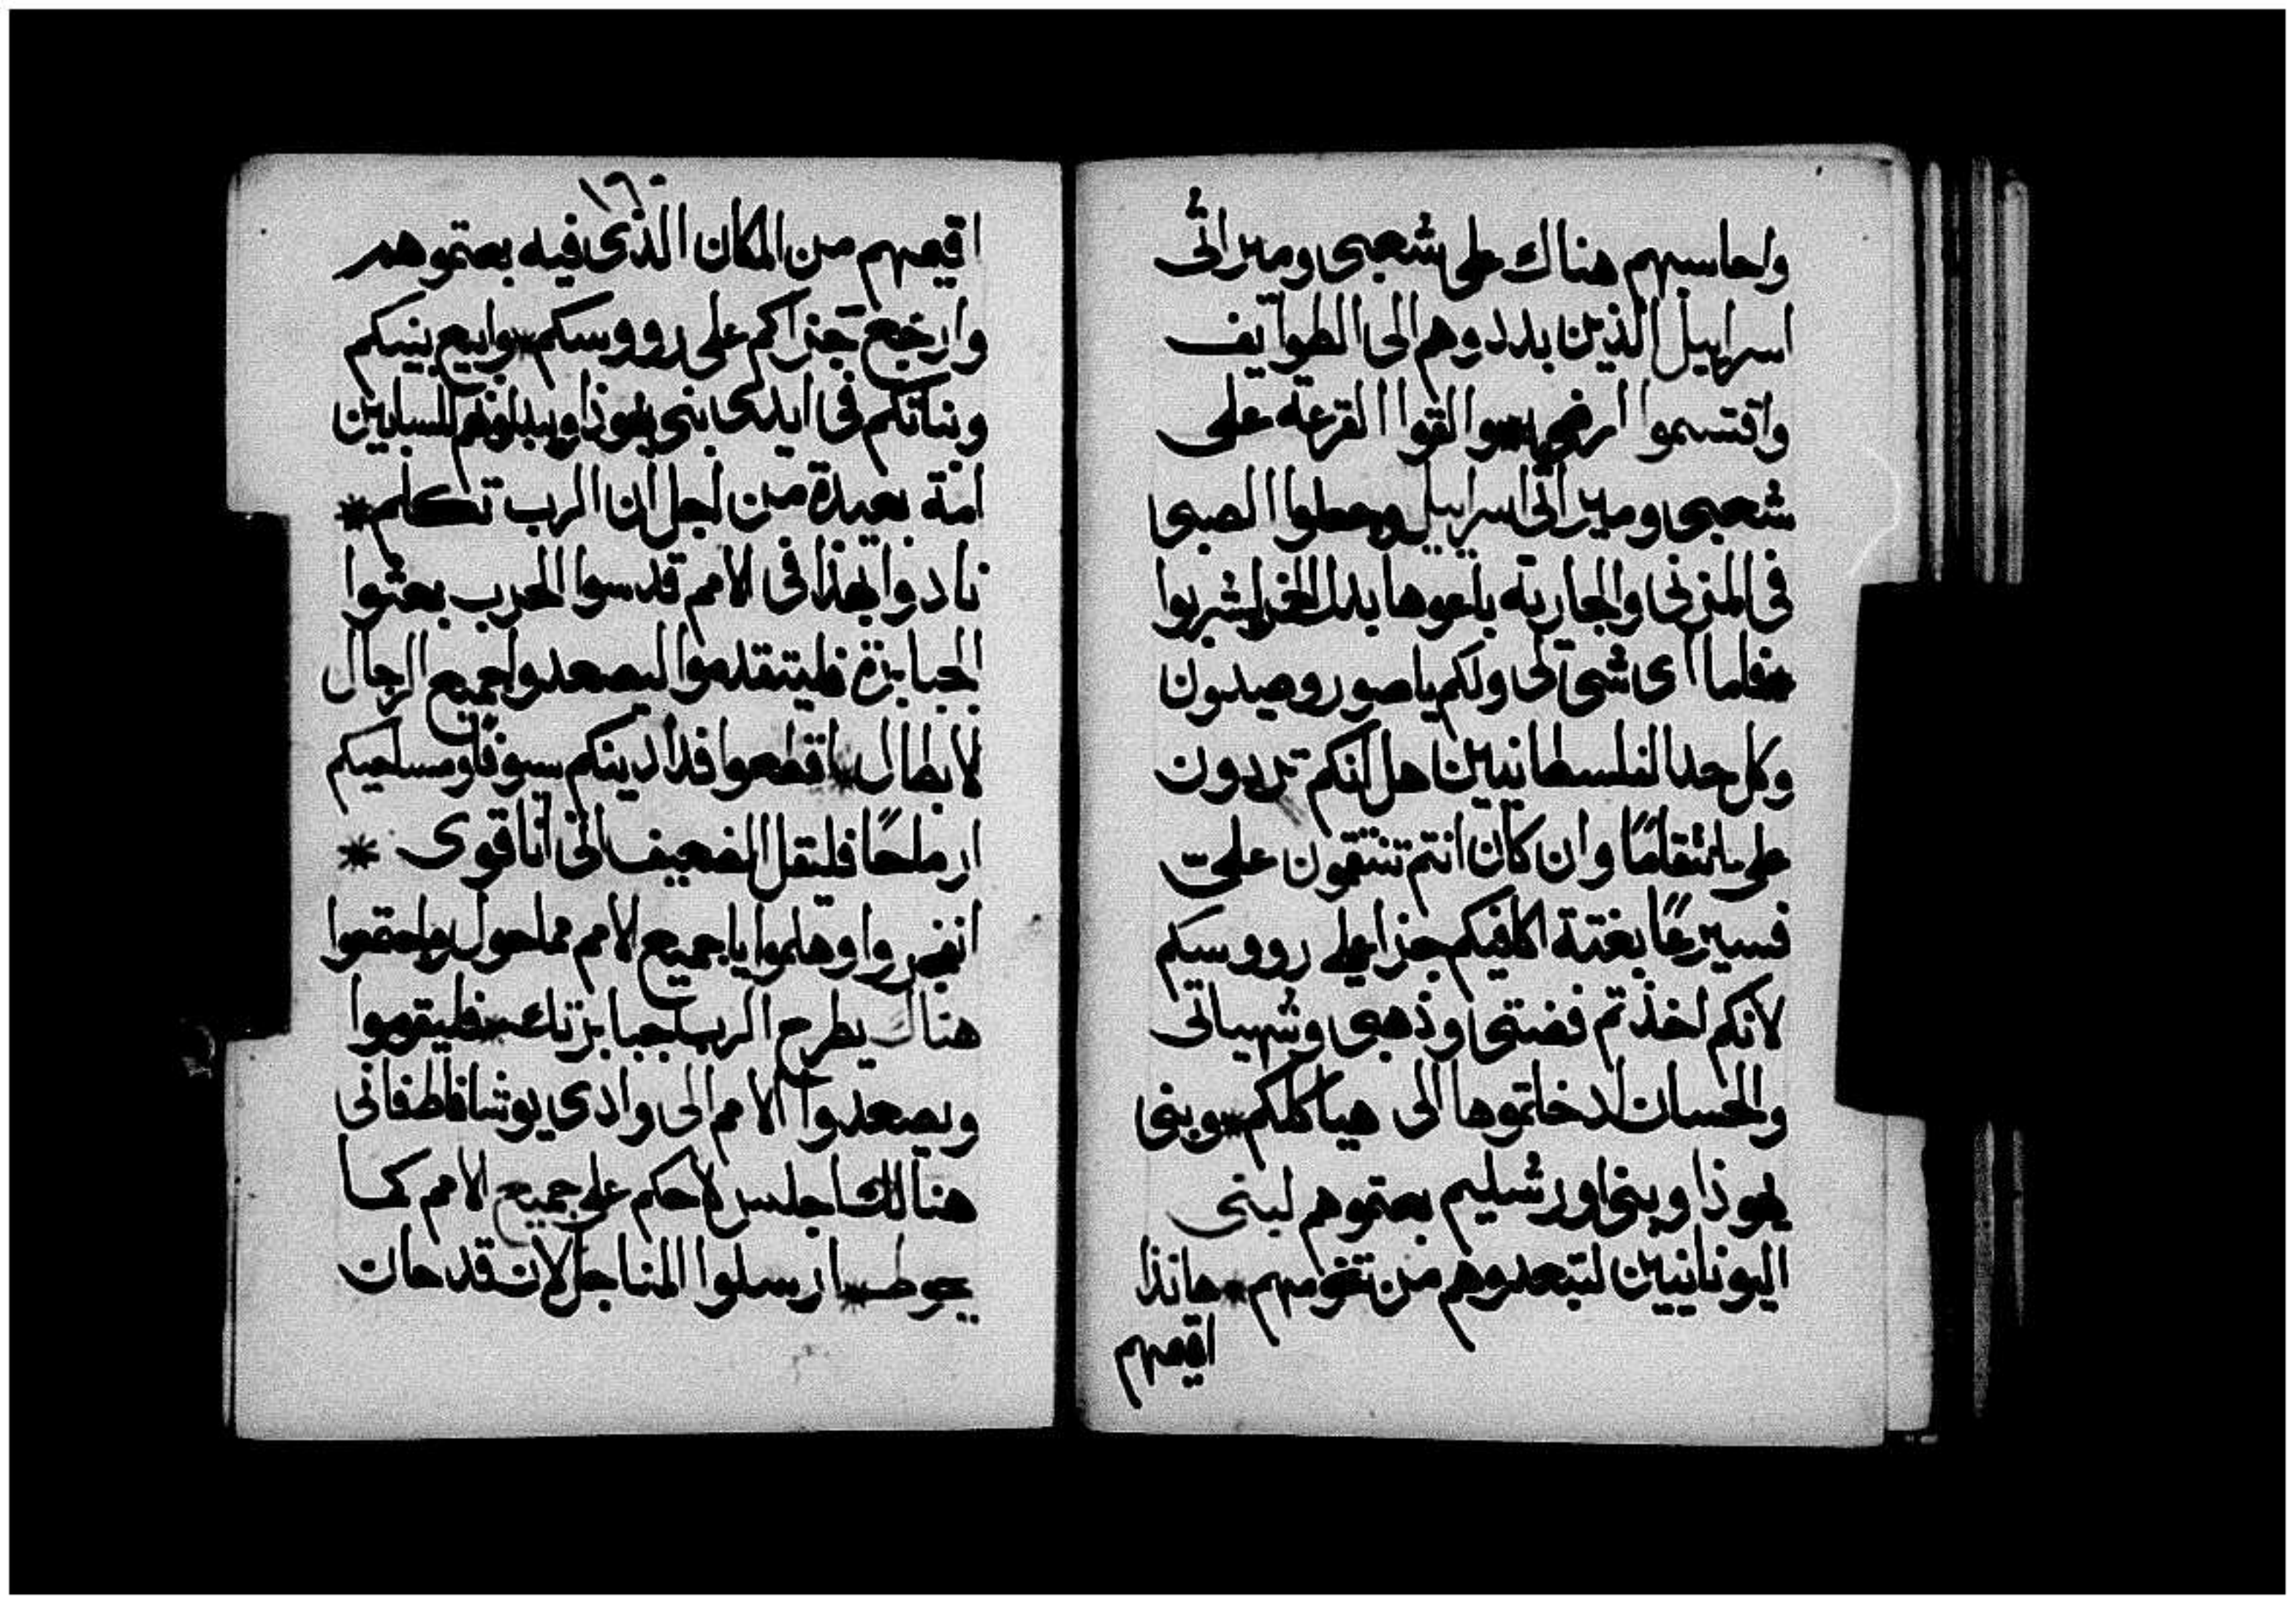 واحاسبهم هناك على شعبى وميراثى
اسراييل الذين بددوهم الى الطوايف
واقتسموا ارضى * والقوا القرعة على
شعبى وميراثى اسراييل وحطوا الصبى
فى المزنى والجارية باعوها بدل الخمر ليشربوا
* فاما اى شى لى ولكم يا صور وصيدون
وكل حد الفلسطانيين هل انكم تردون
على انتقامًا وان كان انتم تنتقمون علىّ
فسيرعًا بغتة اكافيكم جزا على رووسكم
لانكم اخذتم فضتى وذهبى وشهياتى
والحسان ادخلتموها الى هياكلكم * وبنى
يهوذا وبنى اورشليم بعتموهم لبنى
اليونانيين لتبعدوهم من تخومهم * هانذا
اقيمهم
اقيمهم من المكان الذى فيه بعتموهم
وارجع جزاكم على رووسكم * وابيع بنيكم
وبناتكم فى ايدى بنى يهوذا ويبذلونهم للسابيين
امة بعيدة من اجل ان الرب تكلم *
نادوا بهذا فى الامم قدسوا الحرب بعثوا
الجبابرة فليتقدموا ليصعدوا جميع الرجال
لابطال * اقطعوا فدادينكم سيوفا ومساحيكم
ارماحًا فليقل الضعيف انى انا قوى *
انفروا وهلموا يا جميع الامم مما حول واجتمعوا
هناك يطرح الرب جبابرتك * فليقوموا
ويصعدوا الامم الى وادى يوشافاط فانى
هنالك اجلس لاحكم على جميع الامم كما
يحوط * ارسلوا المناجل لان قد حان